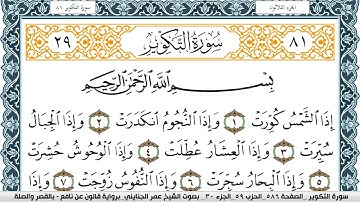 سورة التكوير ٨٦
الجزء الثلاثون
٨١ سُورَةُ التَّكْوِيرِ ٢٩
بِسْمِ اللَّهِ الرَّحْمَٰنِ الرَّحِيمِ
إِذَا الشَّمْسُ كُوِّرَتْ ١ وَإِذَا النُّجُومُ انكَدَرَتْ ٢ وَإِذَا الْجِبَالُ
سُيِّرَتْ ٣ وَإِذَا الْعِشَارُ عُطِّلَتْ ٤ وَإِذَا الْوُحُوشُ حُشِرَتْ
٥ وَإِذَا الْبِحَارُ سُجِّرَتْ ٦ وَإِذَا النُّفُوسُ زُوِّجَتْ ٧ وَإِذَا
سورة التكوير - الصفحة ٥٨٦ الحزب ٥٩ الجزء ٣٠ - بصوت الشيخ عمر الجنايني - برواية قالون عن نافع - بالقصر والصلة